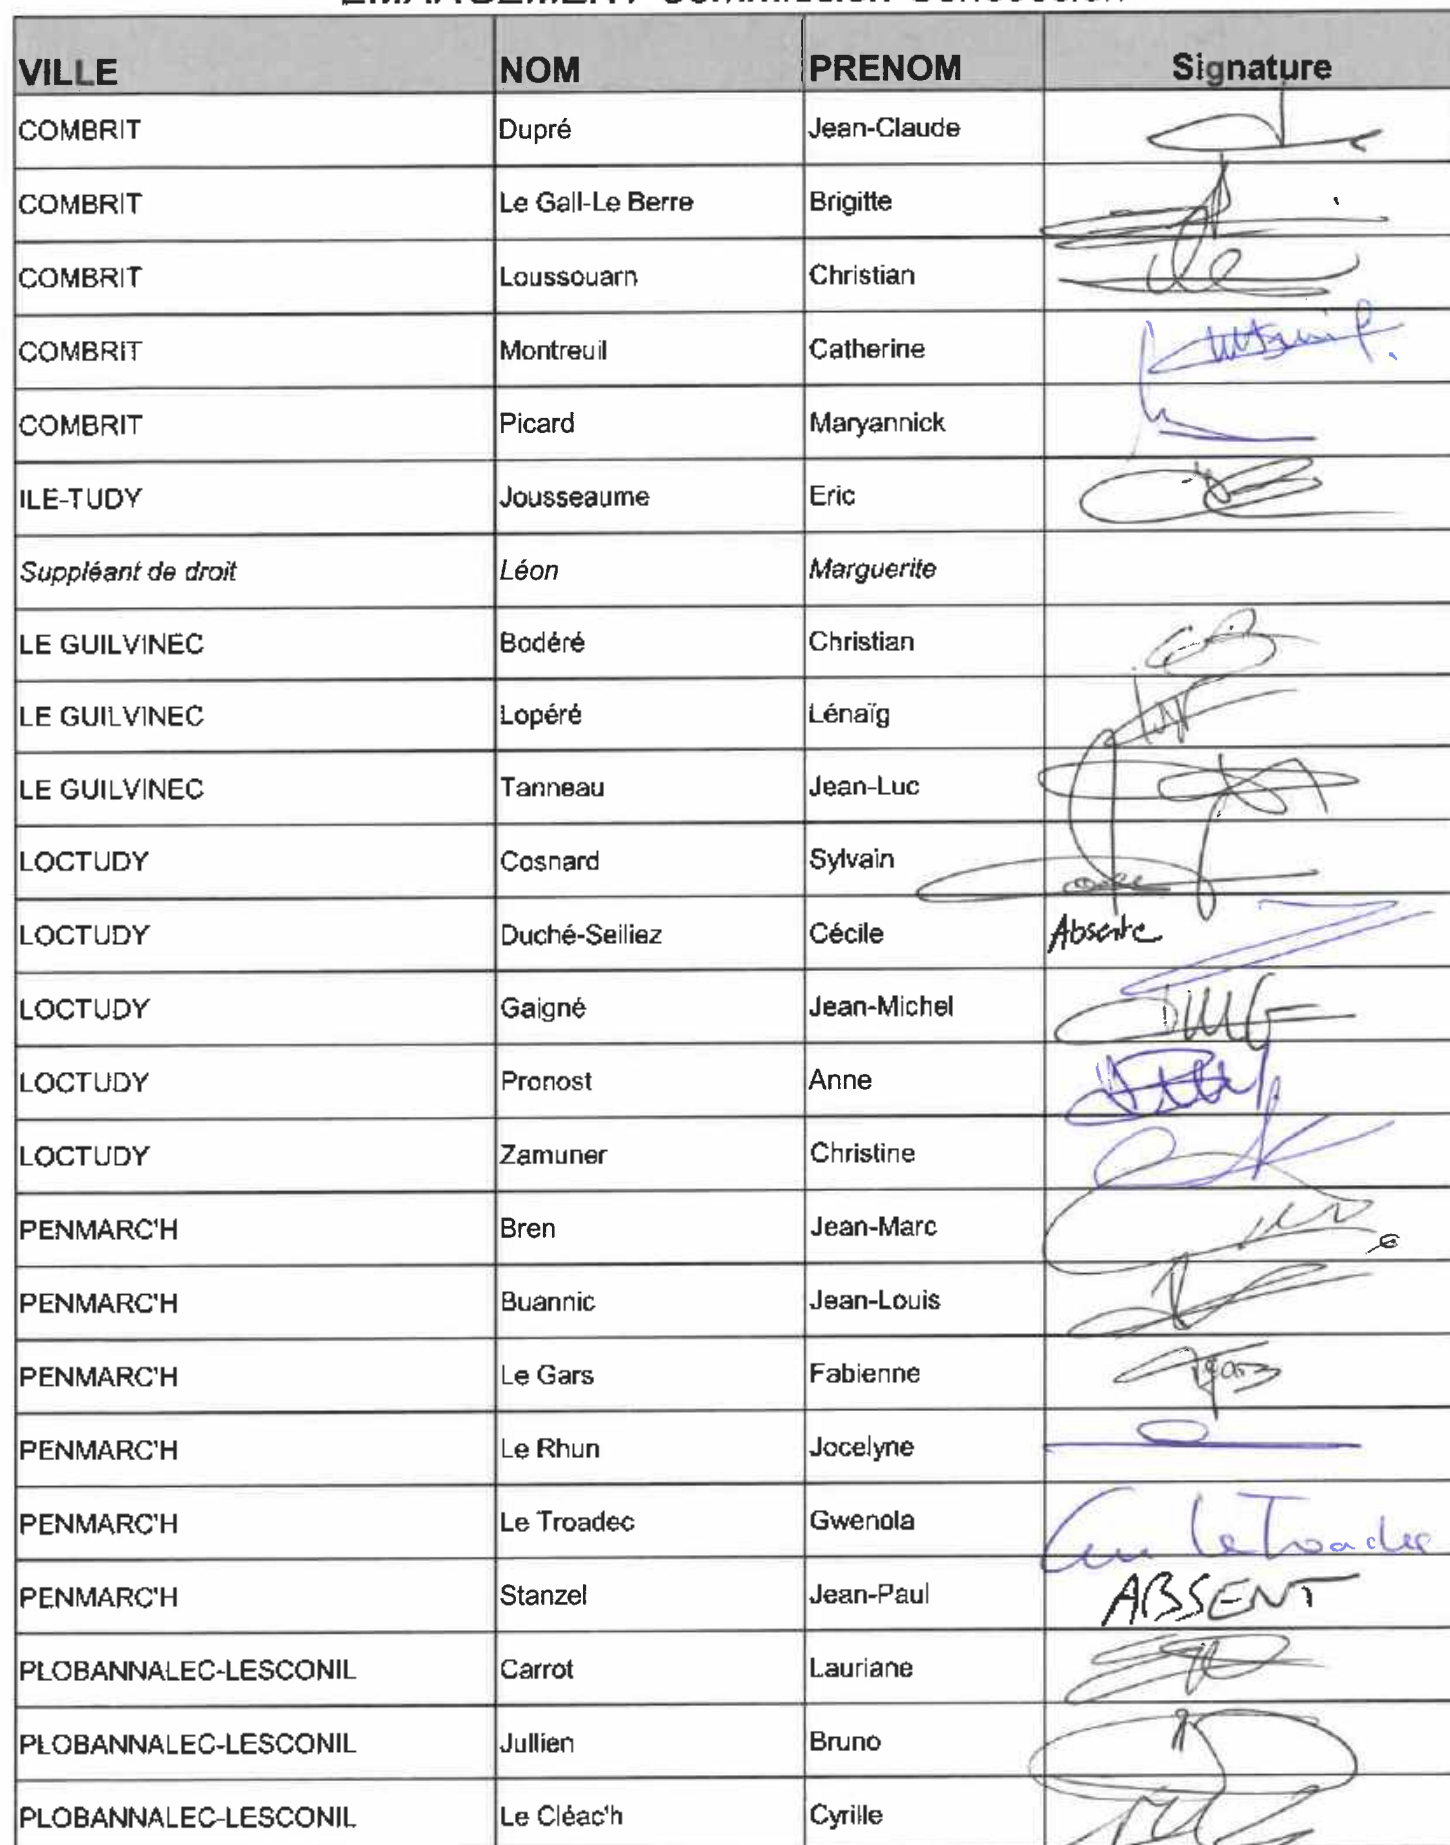 VILLE NOM PRENOM Signature
COMBRIT Dupré Jean-Claude
COMBRIT Le Gall-Le Berre Brigitte
COMBRIT Loussouarn Christian
COMBRIT Montreuil Catherine
COMBRIT Picard Maryannick
ILE-TUDY Jousseaume Eric
Suppléant de droit Léon Marguerite
LE GUILVINEC Bodéré Christian
LE GUILVINEC Lopéré Lénaïg
LE GUILVINEC Tanneau Jean-Luc
LOCTUDY Cosnard Sylvain
LOCTUDY Duché-Seiliez Cécile Absente
LOCTUDY Gaigné Jean-Michel
LOCTUDY Pronost Anne
LOCTUDY Zamuner Christine
PENMARC'H Bren Jean-Marc
PENMARC'H Buannic Jean-Louis
PENMARC'H Le Gars Fabienne
PENMARC'H Le Rhun Jocelyne
PENMARC'H Le Troadec Gwenola Le Troadec
PENMARC'H Stanzel Jean-Paul ABSENT
PLOBANNALEC-LESCONIL Carrot Lauriane
PLOBANNALEC-LESCONIL Jullien Bruno
PLOBANNALEC-LESCONIL Le Cléac'h Cyrille